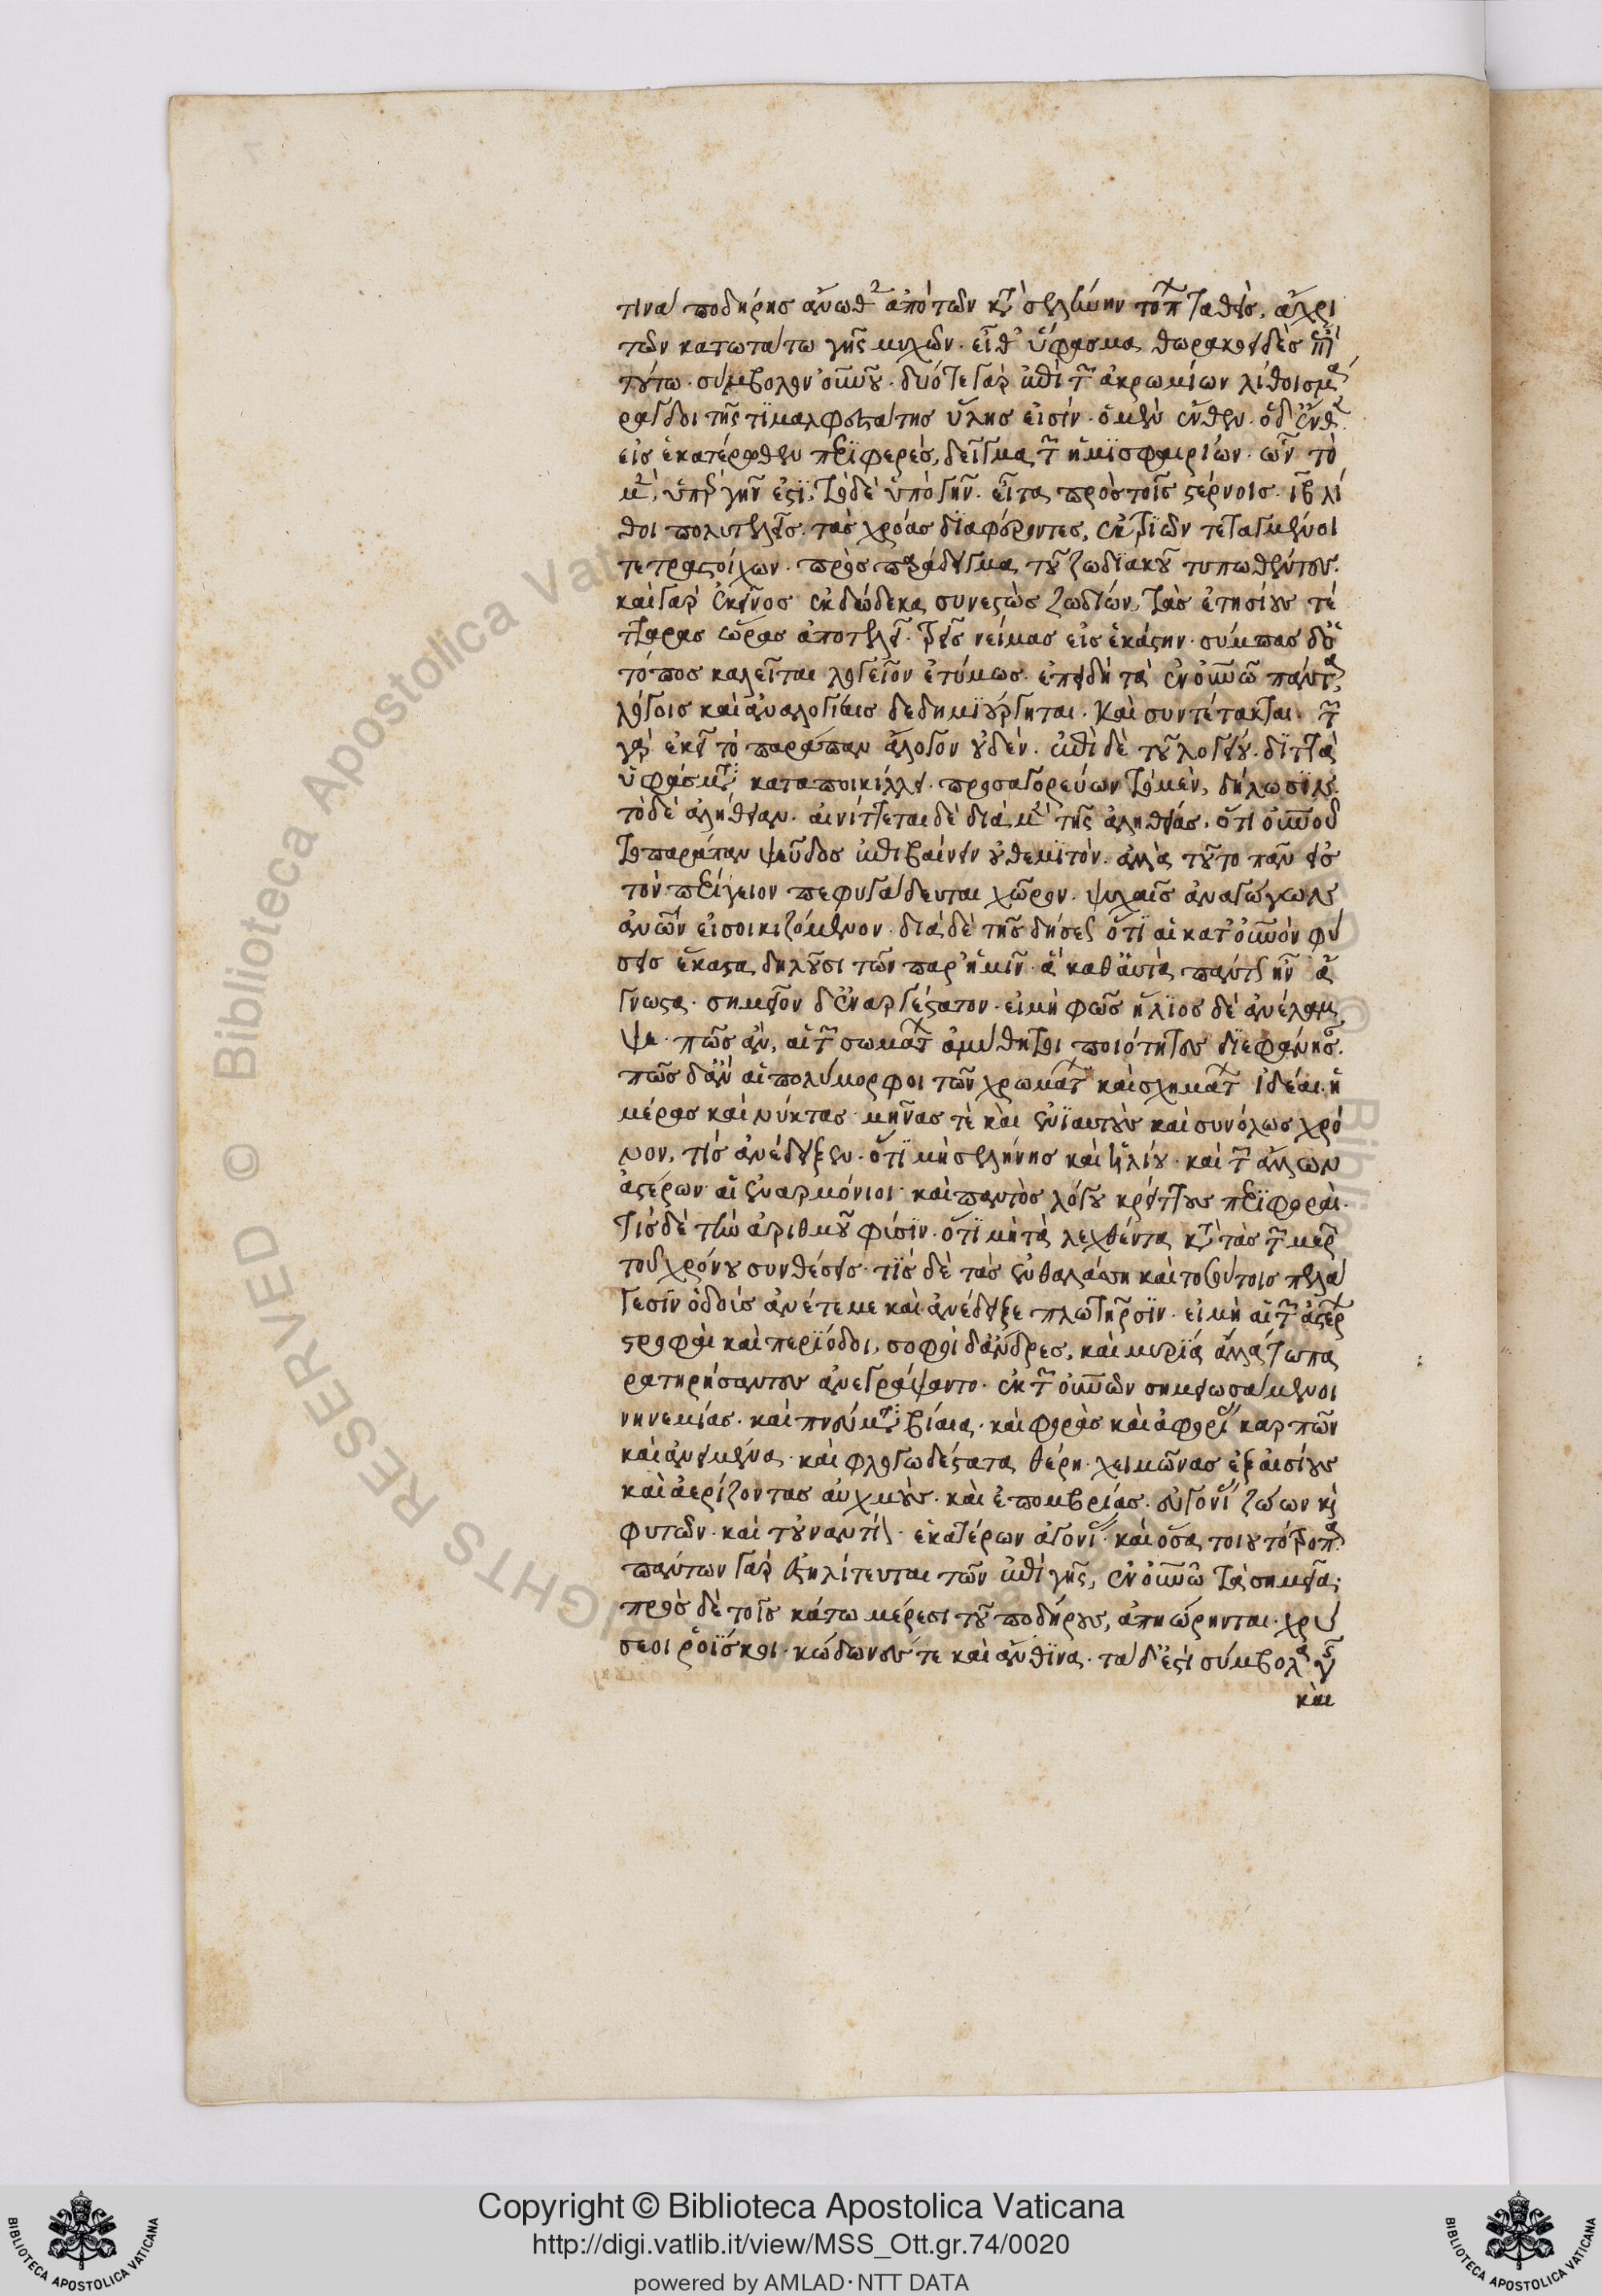 τινα ποδήρης ἄνωθεν ἀπὸ τῶν κατὰ σελήνην τόπων ταθεὶς, ἄχρι
τῶν κατωτάτω γῆς μυχῶν. εἶθ' ὕφασμα θωρακοειδὲς ἐπὶ
τούτῳ. σύμβολον οὐρανοῦ. δύο τε γὰρ ἐπὶ τῶν ἀκρωμίων λίθοι σμα
ράγδοι τῆς τιμαλφεστάτης ὕλης εἰσίν. ὁ μὲν ἔνθεν. ὁ δ' ἔνθεν.
εἰς ἑκατέρωθεν περιφερὲς, δεῖγμα τῶν ἡμισφαιρίων. ὧν τὸ
μὲν, ὑπὲρ γῆν ἐστι, τὸ δὲ ὑπὸ γῆν. εἶτα πρὸς τοῖς στέρνοις. ιβ λί
θοι πολυτελεῖς. τὰς χρόας διαφέροντες, ἐκ τριῶν τεταγμένοι
τετραστοίχων. πρὸς παράδειγμα τοῦ ζωδιακοῦ τυπωθέντες.
καὶ γὰρ ἐκεῖνος ἐκ δώδεκα συνεστὼς ζωδίων, τὰς ἐτησίους τέ
τταρας ὥρας ἀποτελεῖ. τρεῖς νείμας εἰς ἑκάστην. σύμπας δ' ὁ
τόπος καλεῖται λογεῖον ἐτύμως. ἐπειδὴ τὰ ἐν οὐρανῷ πάντα,
λόγοις καὶ ἀναλογίαις δεδημιούργηται. καὶ συντέτακται. τῶν
γὰρ ἐκεῖ τὸ παράπαν ἄλογον οὐδέν. ἐπὶ δὲ τοῦ λογείου. διττὰ
ὑφάσματα καταποικίλλει. προσαγορεύων τὸ μὲν, δήλωσιν.
τὸ δὲ ἀλήθειαν. αἰνίττεται δὲ διὰ μὲν τῆς ἀληθείας. ὅτι οὐρανοῦ
τὸ παράπαν ψεῦδος ἐπιβαίνειν οὐ θεμιτὸν. ἀλλὰ τοῦτο πᾶν εἰς
τὸν περίγειον πεφυγάδευται χῶρον. ψυχαῖς ἀναγώγων
ἀνῶν εἰσοικιζόμενον. διὰ δὲ τῆς δηλώσεως ὅτι αἱ κατ' οὐρανὸν φύ
σεις ἕκαστα δηλοῦσι τῶν παρ' ἡμῖν. ἃ καθ' αὑτὰ πάντως ἦν ἂν
γνωστα. σημεῖον δ' ἐναργέστατον. εἰ μὴ φῶς ἥλιος δὲ ἀνέλαμ
ψε. πῶς ἂν, αἱ τῶν σωμάτων ἀμύθητοι ποιότητες διεφάνησαν.
πῶς δ' ἂν αἱ πολύμορφοι τῶν χρωμάτων καὶ σχημάτων ἰδέαι. ἡ
μέρας καὶ νύκτας. μῆνας τὲ καὶ ἐνιαυτοὺς καὶ συνόλως χρό
νον, τίς ἀνέδειξεν. ὅτι μὴ σελήνης καὶ ἡλίου. καὶ τῶν ἄλλων
ἀστέρων αἱ ἐναρμόνιοι καὶ παντὸς λόγου κρείττους περιφοραὶ.
τίς δὲ τὴν ἀριθμοῦ φύσιν. ὅτι μὴ τὰ λεχθέντα κατὰ τὰς τῶν μερῶν
τοῦ χρόνου συνθέσεις. τίς δὲ τὰς ἐν θαλάσσῃ καὶ τοσούτοις πελά
γεσιν ὁδοὺς ἀνέτεμε καὶ ἀνέδειξε πλωτῆρσιν. εἰ μὴ αἱ τῶν ἀστέρων
στροφαὶ καὶ περίοδοι, σοφοὶ δ' ἄνδρες, καὶ μυρία ἄλλα τῷ πα
ρατηρήσαντες ἀνεγράψαντο. ἐκ τῶν οὐρανίων σημειωσάμενοι
νηνεμίας. καὶ πνευμάτων βίαια. καὶ φορὰς καὶ ἀφορίας καρπῶν
καὶ ἀνειμένα. καὶ φλογωδέστατα θέρη. χειμῶνας ἐξαισίους
καὶ ἀερίζοντας αὐχμοὺς. καὶ ἐπομβρίας. εὐγονίας ζώων καὶ
φυτῶν. καὶ τοὐναντίον. ἑκατέρων ἀγονίας. καὶ ὅσα τοιουτότροπα.
πάντων γὰρ ἐστηλίτευται τῶν ἐπὶ γῆς, ἐν οὐρανῷ τὰ σημεῖα.
πρὸς δὲ τοῖς κάτω μέρεσι τοῦ ποδήρους, ἀπῃώρηνται. χρύ
σεοι ῥοΐσκοι. κώδωνές τε καὶ ἄνθινα. τὰ δ' ἐστὶ σύμβολα γῆς
καὶ
Copyright © Biblioteca Apostolica Vaticana
http://digi.vatlib.it/view/MSS_Ott.gr.74/0020
powered by AMLAD·NTT DATA